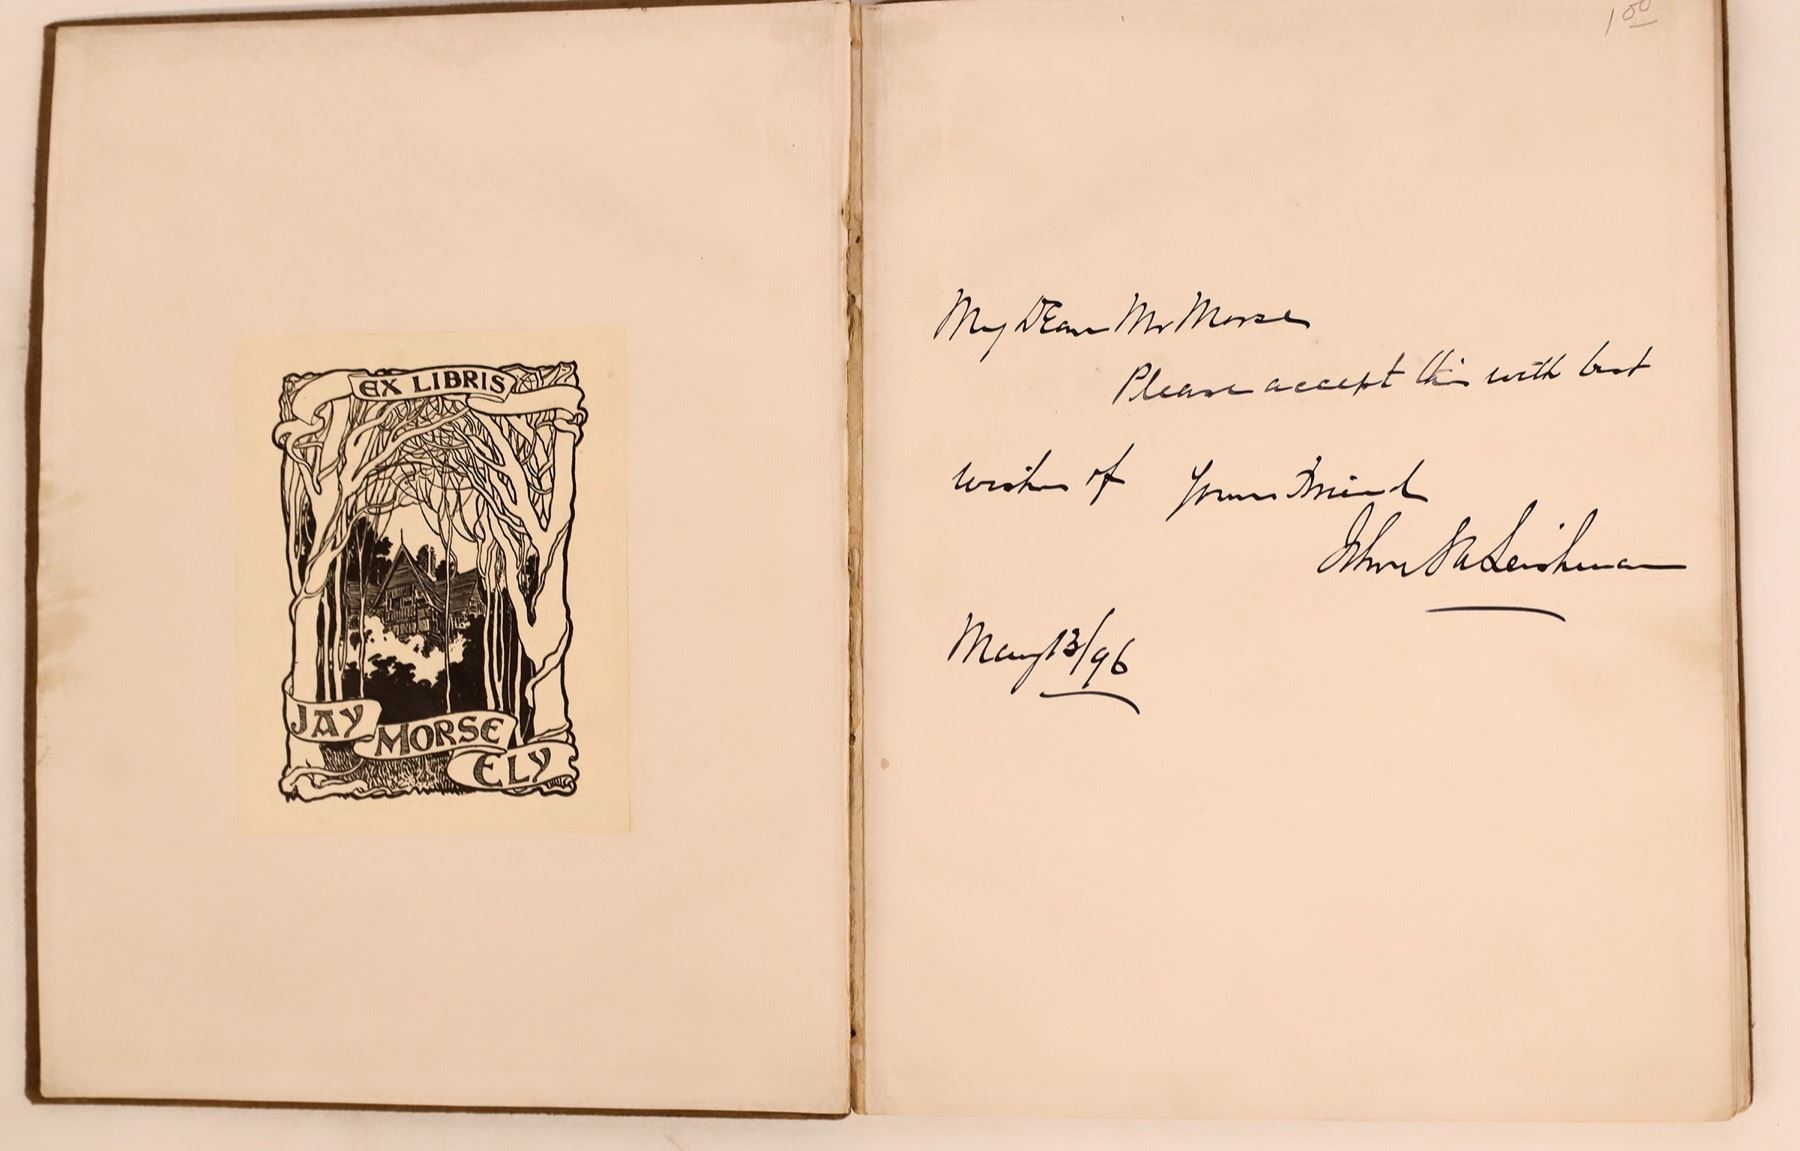 EX LIBRIS
JAY
MORSE
ELY
1 00
My Dear Mr Morse
Please accept this with best
wishes of Your Friend
John G A Leishman
May 13/96